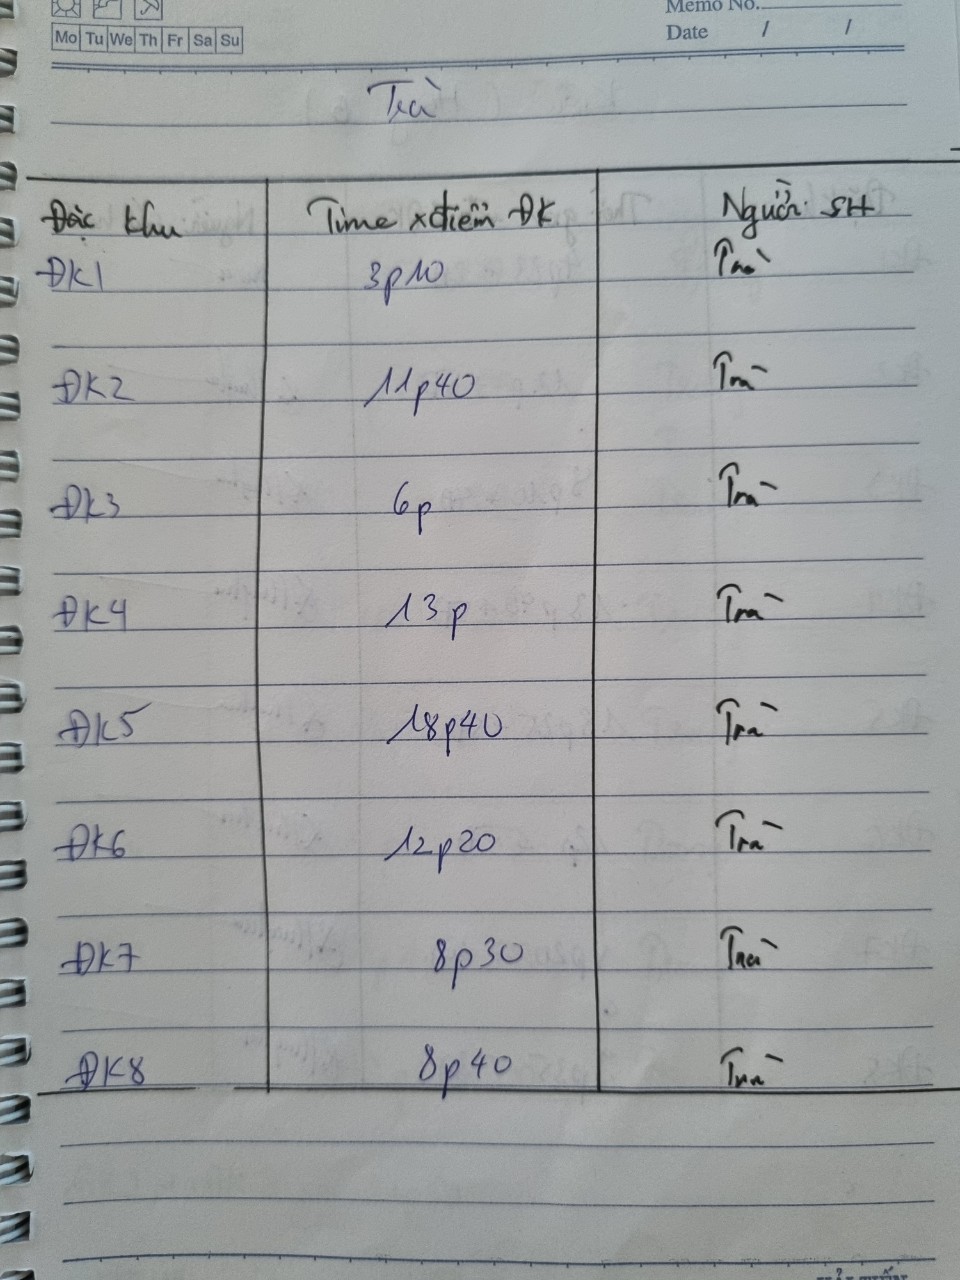 Memo No.
Mo Tu We Th Fr Sa Su
Date / /
Trà
Đặc khu Time xđiểm ĐK Người SH
ĐK1 3p10 Trà
ĐK2 11p40 Trà
ĐK3 6p Trà
ĐK4 13p Trà
ĐK5 18p40 Trà
ĐK6 12p20 Trà
ĐK7 8p30 Trà
ĐK8 8p40 Trà